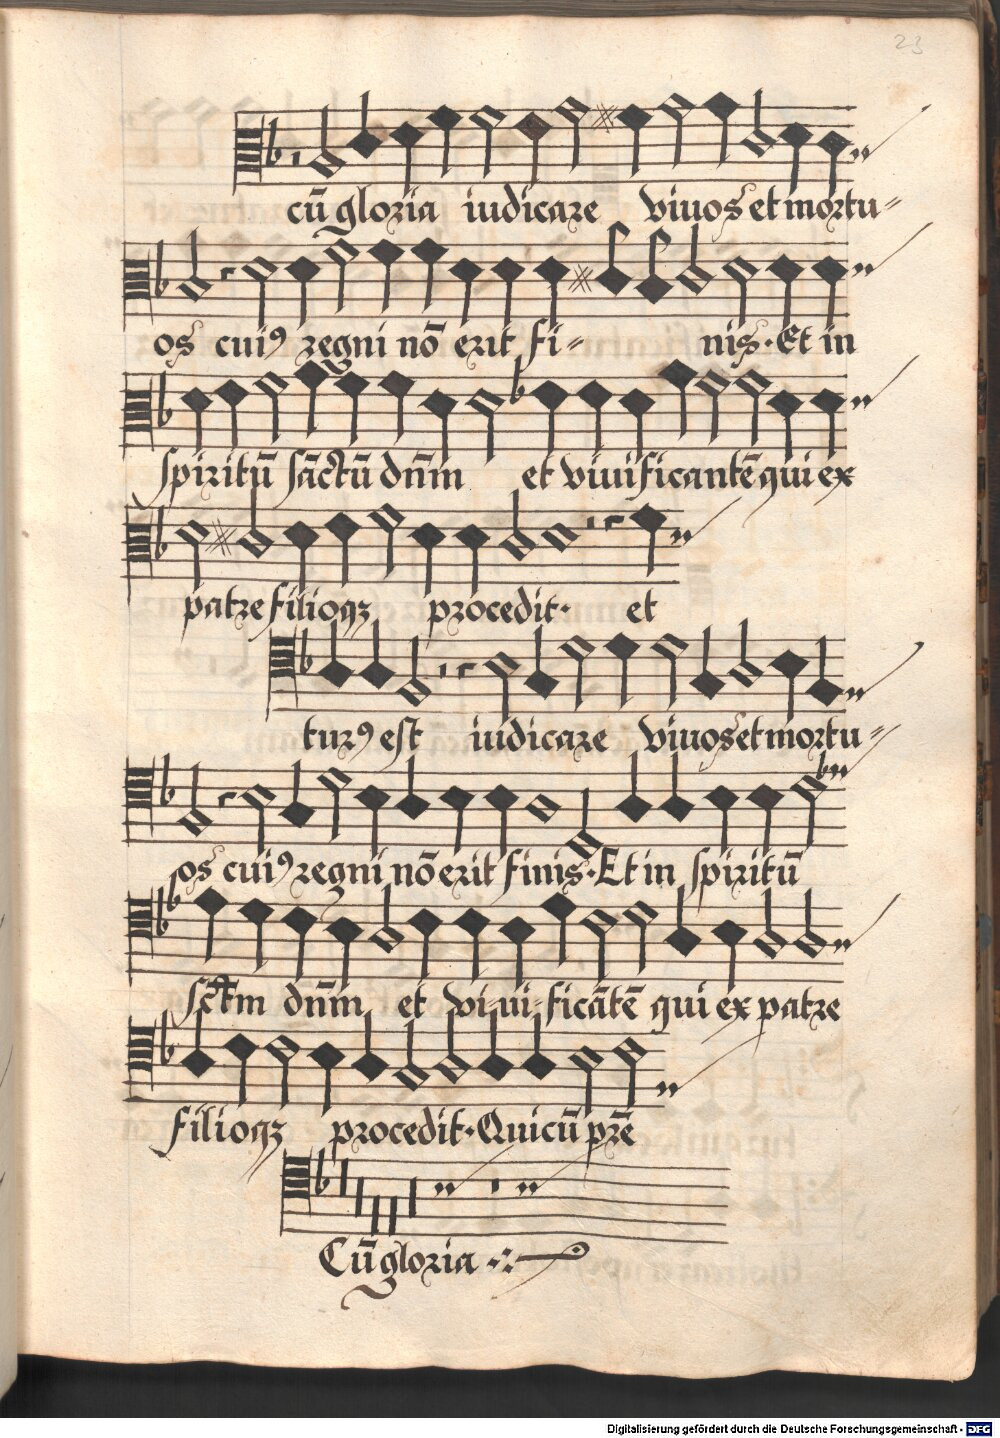 23
cū gloria iudicare vivos et mortu=
os cuiꝰ regni nō erit fi= nis. Et in
spiritū sāctū dn̄m et vivificantē qui ex
patre filioqꝫ procedit. et
turꝰ est iudicare vivos et mortu=
os cuiꝰ regni nō erit finis. Et in spiritū
sctm̄ dn̄m et vi-vi-ficātē qui ex patre
filioqꝫ procedit. Qui cū pr̄e
Cū gloria
Digitalisierung gefördert durch die Deutsche Forschungsgemeinschaft - DFG